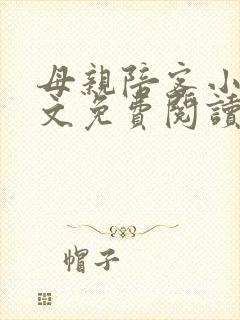 母親陪客小
文免費閱讀
帽子